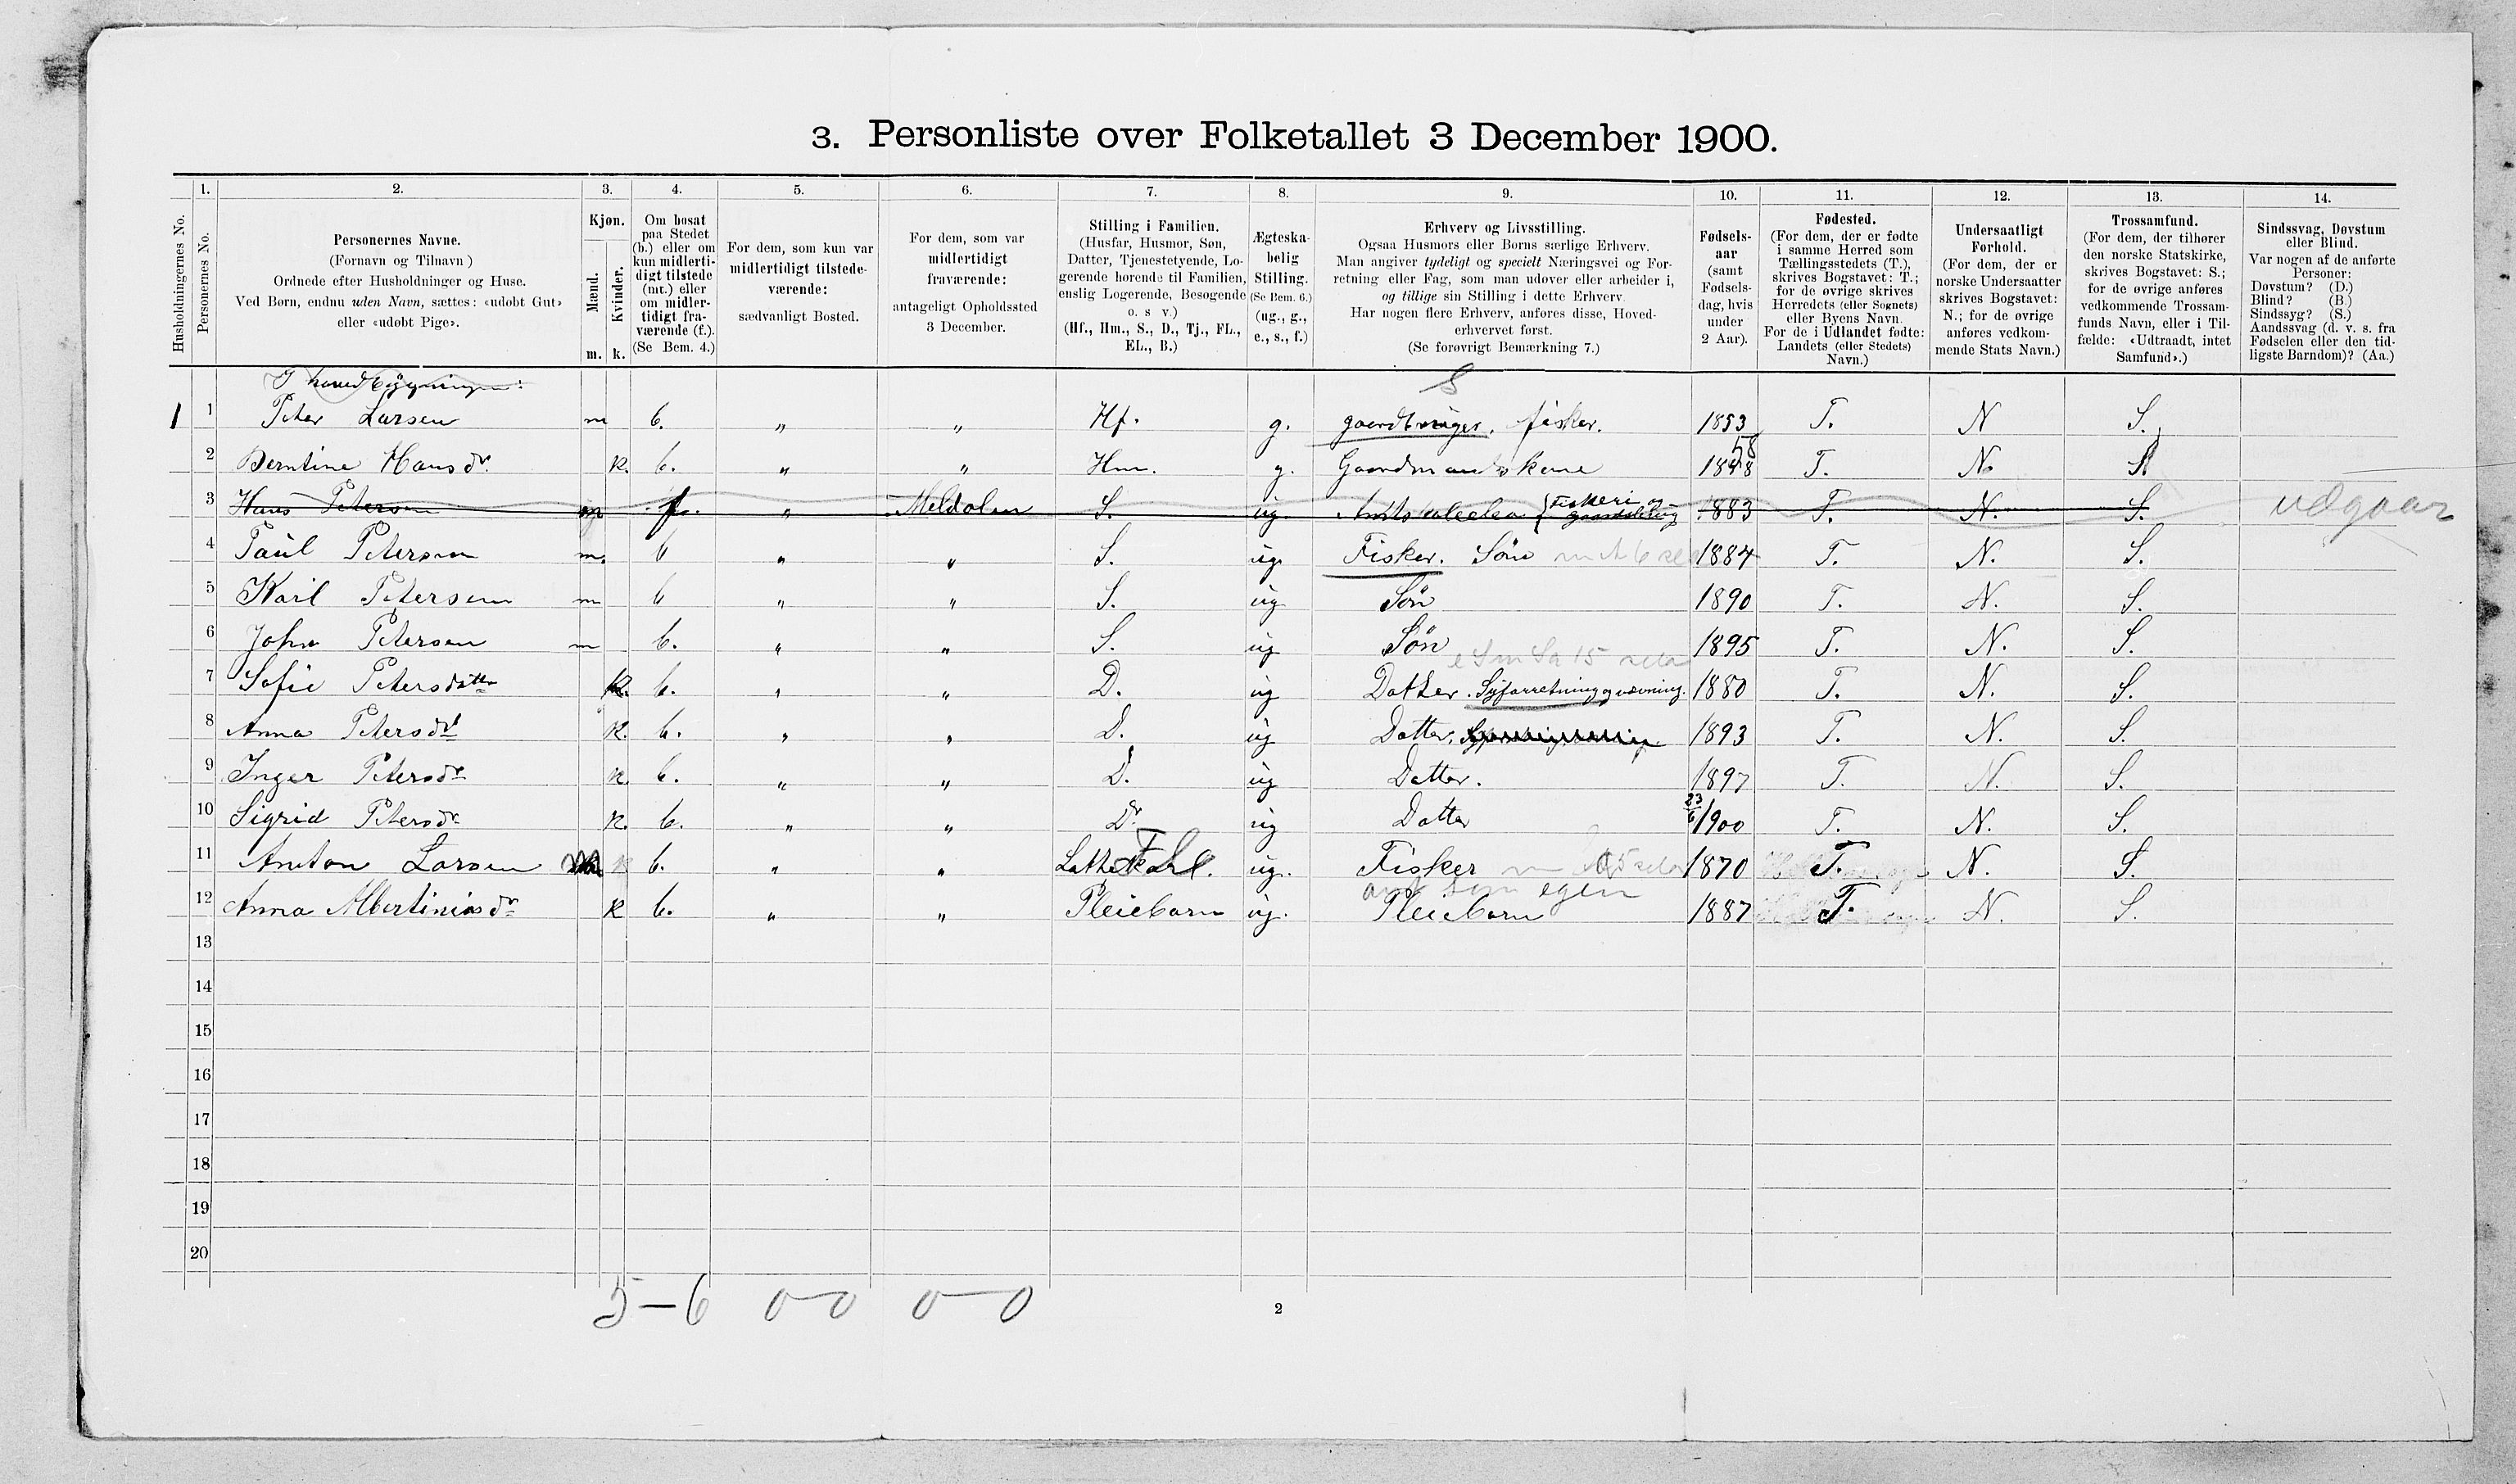 3. Personliste over Folketallet 3 December 1900.
1. 2. 3. 4. 5. 6. 7. 8. 9. 10. 11. 12. 13. 14.
Husholdningernes No.
Personernes No.
Personernes Navne.
(Fornavn og Tilnavn)
Ordnede efter Husholdninger og Huse.
Ved Børn, endnu uden Navn, sættes: «udøbt Gut»
eller «udøbt Pige».
Kjøn.
Mænd.
Kvinder.
m. k.
Om bosat
paa Stedet
(b.) eller om
kun midlerti-
digt tilstede
(mt.) eller
om midler-
tidigt fra-
værende (f.).
(Se Bem. 4.)
For dem, som kun var
midlertidigt tilstede-
værende:
sædvanligt Bosted.
For dem, som var
midlertidigt
fraværende:
antageligt Opholdssted
3 December.
Stilling i Familien.
(Husfar, Husmor, Søn,
Datter, Tjenestetyende, Lo-
gerende hørende til Familien,
enslig Logerende, Besøgende
o. s v.)
(Hf., Hm., S., D., Tj., FL.,
EL., B.)
Ægteska-
belig
Stilling.
(Se Bem. 6.)
(ug., g.,
e., s., f.)
Erhverv og Livsstilling.
Ogsaa Husmors eller Børns særlige Erhverv.
Man angiver tydeligt og specielt Næringsvei og For-
retning eller Fag, som man udøver eller arbeider i,
og tillige sin Stilling i dette Erhverv.
Har nogen flere Erhverv, anføres disse, Hoved-
erhvervet først.
(Se forøvrigt Bemærkning 7.)
Fødsels-
aar
(samt
Fødsels-
dag, hvis
under
2 Aar).
Fødested.
(For dem, der er fødte
i samme Herred som
Tællingsstedets (T.),
skrives Bogstavet: T.;
for de øvrige skrives
Herredets (eller Sognets)
eller Byens Navn.
For de i Udlandet fødte:
Landets (eller Stedets)
Navn.)
Undersaatligt
Forhold.
(For dem, der er
norske Undersaatter
skrives Bogstavet:
N.; for de øvrige
anføres vedkom-
mende Stats Navn.)
Trossamfund.
(For dem, der tilhører
den norske Statskirke,
skrives Bogstavet: S.;
for de øvrige anføres
vedkommende Trossam-
funds Navn, eller i Til-
fælde: «Udtraadt, intet
Samfund».)
Sindssvag, Døvstum
eller Blind.
Var nogen af de anførte
Personer:
Døvstum? (D.)
Blind? (B.)
Sindssyg? (S.)
Aandssvag (d. v. s. fra
Fødselen eller den tid-
ligste Barndom)? (Aa.)
I hovedbygningen: S
1 1 Peter Larsen m b. " " Hf. g. gaardbruger. fisker. 1853 T. N S.
2 Berntine Hansdr. k. b. " " Hm. g. Gaardmandskone 58 T. N S
3 Hans Petersen m f. " Meldalen S. ug. Amtsskoleelev {Fiskeri og 1883 T. N. S. udgaar
4 Paul Petersen m. b " " S. ug. Fisker. Søn 1884 T. N. S.
5 Karl Petersen m b " " S. ug Søn 1890 T. N. S.
6 John Petersen m b. " " S. ug Søn 1895 T. N. S.
7 Sofie Petersdatter k. b. " " D. ug Datter. Syforretning og vævning. 1880 T. N. S.
8 Anna Petersdt k. b. " " D. ug Datter. 1893 T. N. S.
9 Inger Petersdr k. b. " " D. ug Datter. 1897 T. N. S.
10 Sigrid Petersdr k. b. " " Dr. ug Datter 23/6 1900 T. N. S.
11 Anton Larsen m b. " " FL ug. Fisker 1870 T. N. S.
som egen
12 Anna Albertinisdr k b. " " Pleiebarn ug. Pleiebarn 1887 T. N. S.
13
14
15
16
17
18
19
20
5-6 0-0 0-0
2